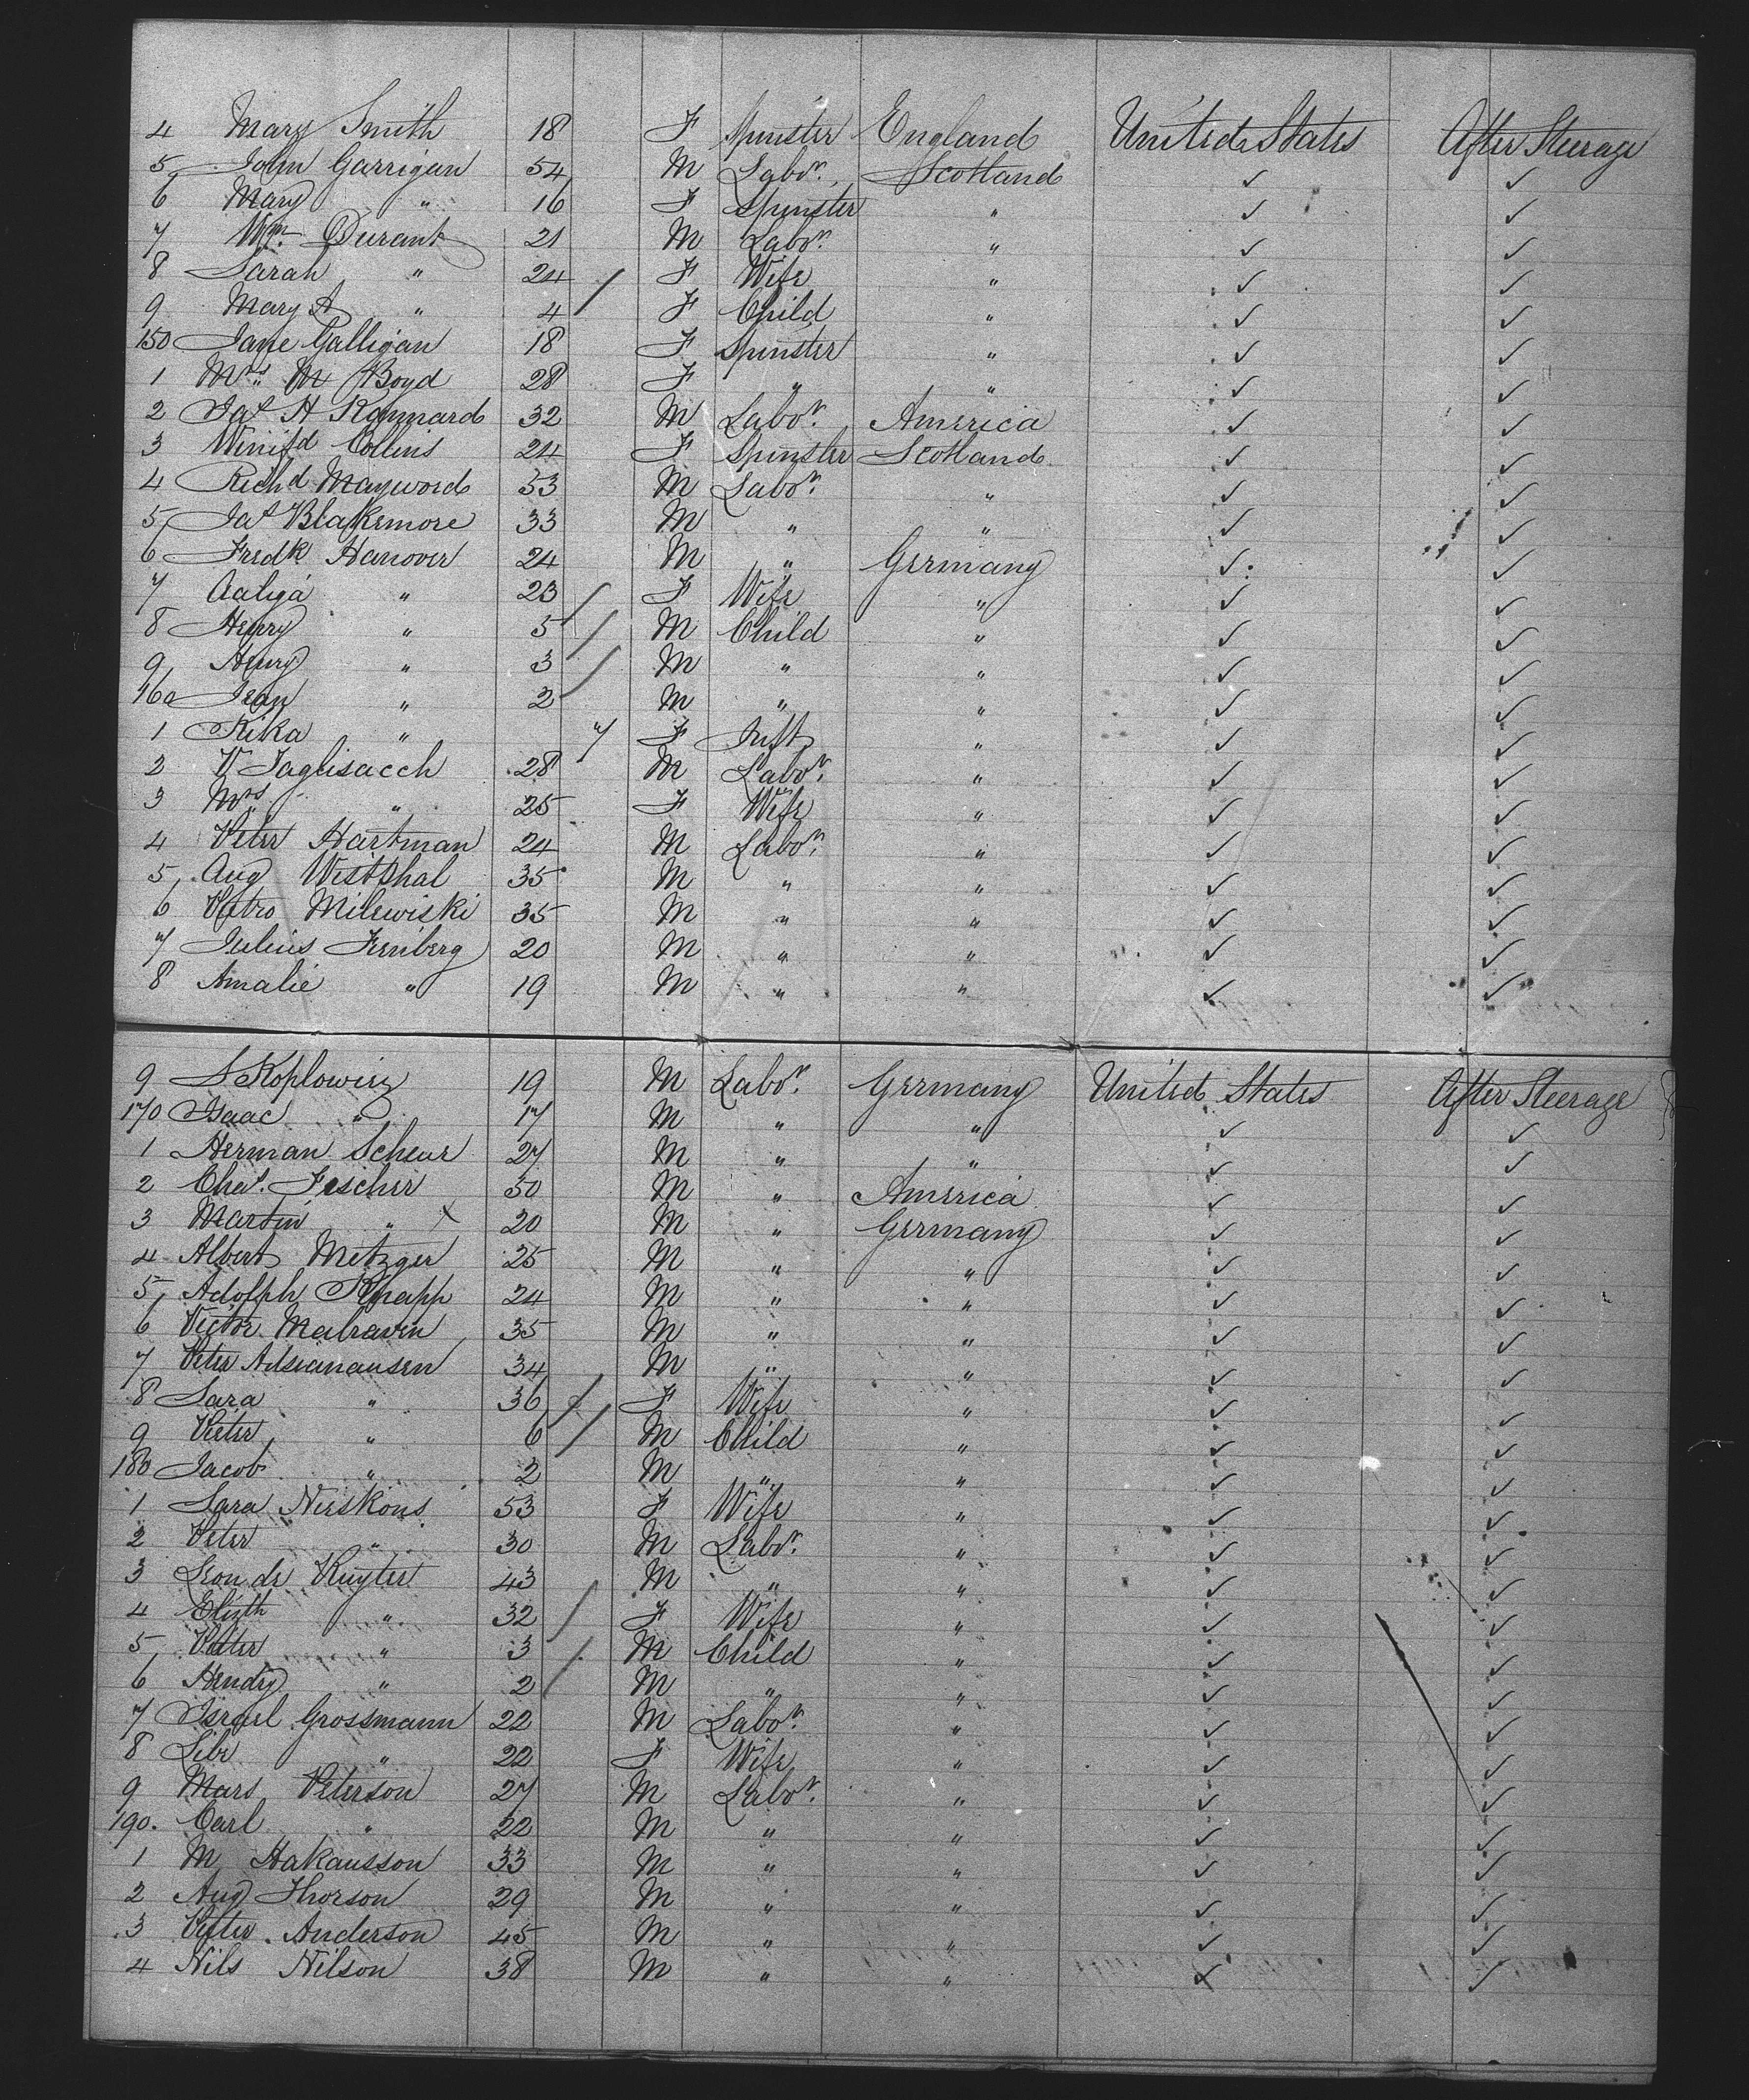 4 Mary Smith 18 F Spinster England United States After Steerage
5 John Garrigan 54 M Labor. Scotland ✓ ✓
6 Mary " 16 F Spinster " ✓ ✓
7 Wm. Durant 21 M Labor. " ✓ ✓
8 Sarah " 24 F Wife " ✓ ✓
9 Mary A " 4 F Child " ✓ ✓
150 Jane Galligan 18 F Spinster " ✓ ✓
1 Mrs. M Boyd 28 F " " ✓ ✓
2 Jas H 32 M Labor. America ✓ ✓
3 Winifd Collins 24 F Spinster Scotland ✓ ✓
4 Richd Mayword 53 M Labor. " ✓ ✓
5 Jas Blakemore 33 M " " ✓ ✓
6 Fredk Hanover 24 M " Germany ✓ ✓
7 " 23 F Wife " ✓ ✓
8 Henry " 5 M Child " ✓ ✓
9 Henry " 3 M " " ✓ ✓
160 Jean " 2 M " " ✓ ✓
1 Rika " 7 F Inft " ✓ ✓
2 V 28 M Labor. " ✓ ✓
3 Mrs " 25 F Wife " ✓ ✓
4 Peter Hartman 24 M Labor. " ✓ ✓
5 Aug Westphal 35 M " " ✓ ✓
6 Petro Milewiski 35 M " " ✓ ✓
7 Julius Fernberg 20 M " " ✓ ✓
8 Amalie " 19 M " " ✓ ✓
9 S Koplowicz 19 M Labor. Germany United States After Steerage
170 Isaac " 17 M " " ✓ ✓
1 Herman Scheur 27 M " " ✓ ✓
2 Chas. Fischer 50 M " America ✓ ✓
3 Martin " x 20 M " Germany ✓ ✓
4 Albert Metzger 25 M " " ✓ ✓
5 Adolph Knapp 24 M " " ✓ ✓
6 Victor Malraven 35 M " " ✓ ✓
7 Peter 34 M " " ✓ ✓
8 Sara " 36 F Wife " ✓ ✓
9 Pieter " 6 M Child " ✓ ✓
180 Jacob " 2 M " " ✓ ✓
1 Sara Nieskons 53 F Wife " ✓ ✓
2 Peter " 30 M Labor. " ✓ ✓
3 Leon de Kuyter 43 M " " ✓ ✓
4 Elizth " 32 F Wife " ✓ ✓
5 Peter " 3 M Child " ✓ ✓
6 Hendry " 2 M " " ✓ ✓
7 Israel Grossmann 22 M Labor. " ✓ ✓
8 Libe " 22 F Wife " ✓ ✓
9 Mars Peterson 27 M Labor. " ✓ ✓
190. Carl " 22 M " " ✓ ✓
1 M Hakansson 33 M " " ✓ ✓
2 Aug Thorson 29 M " " ✓ ✓
3 Petter Anderson 45 M " " ✓ ✓
4 Nils Nilson 38 M " " ✓ ✓